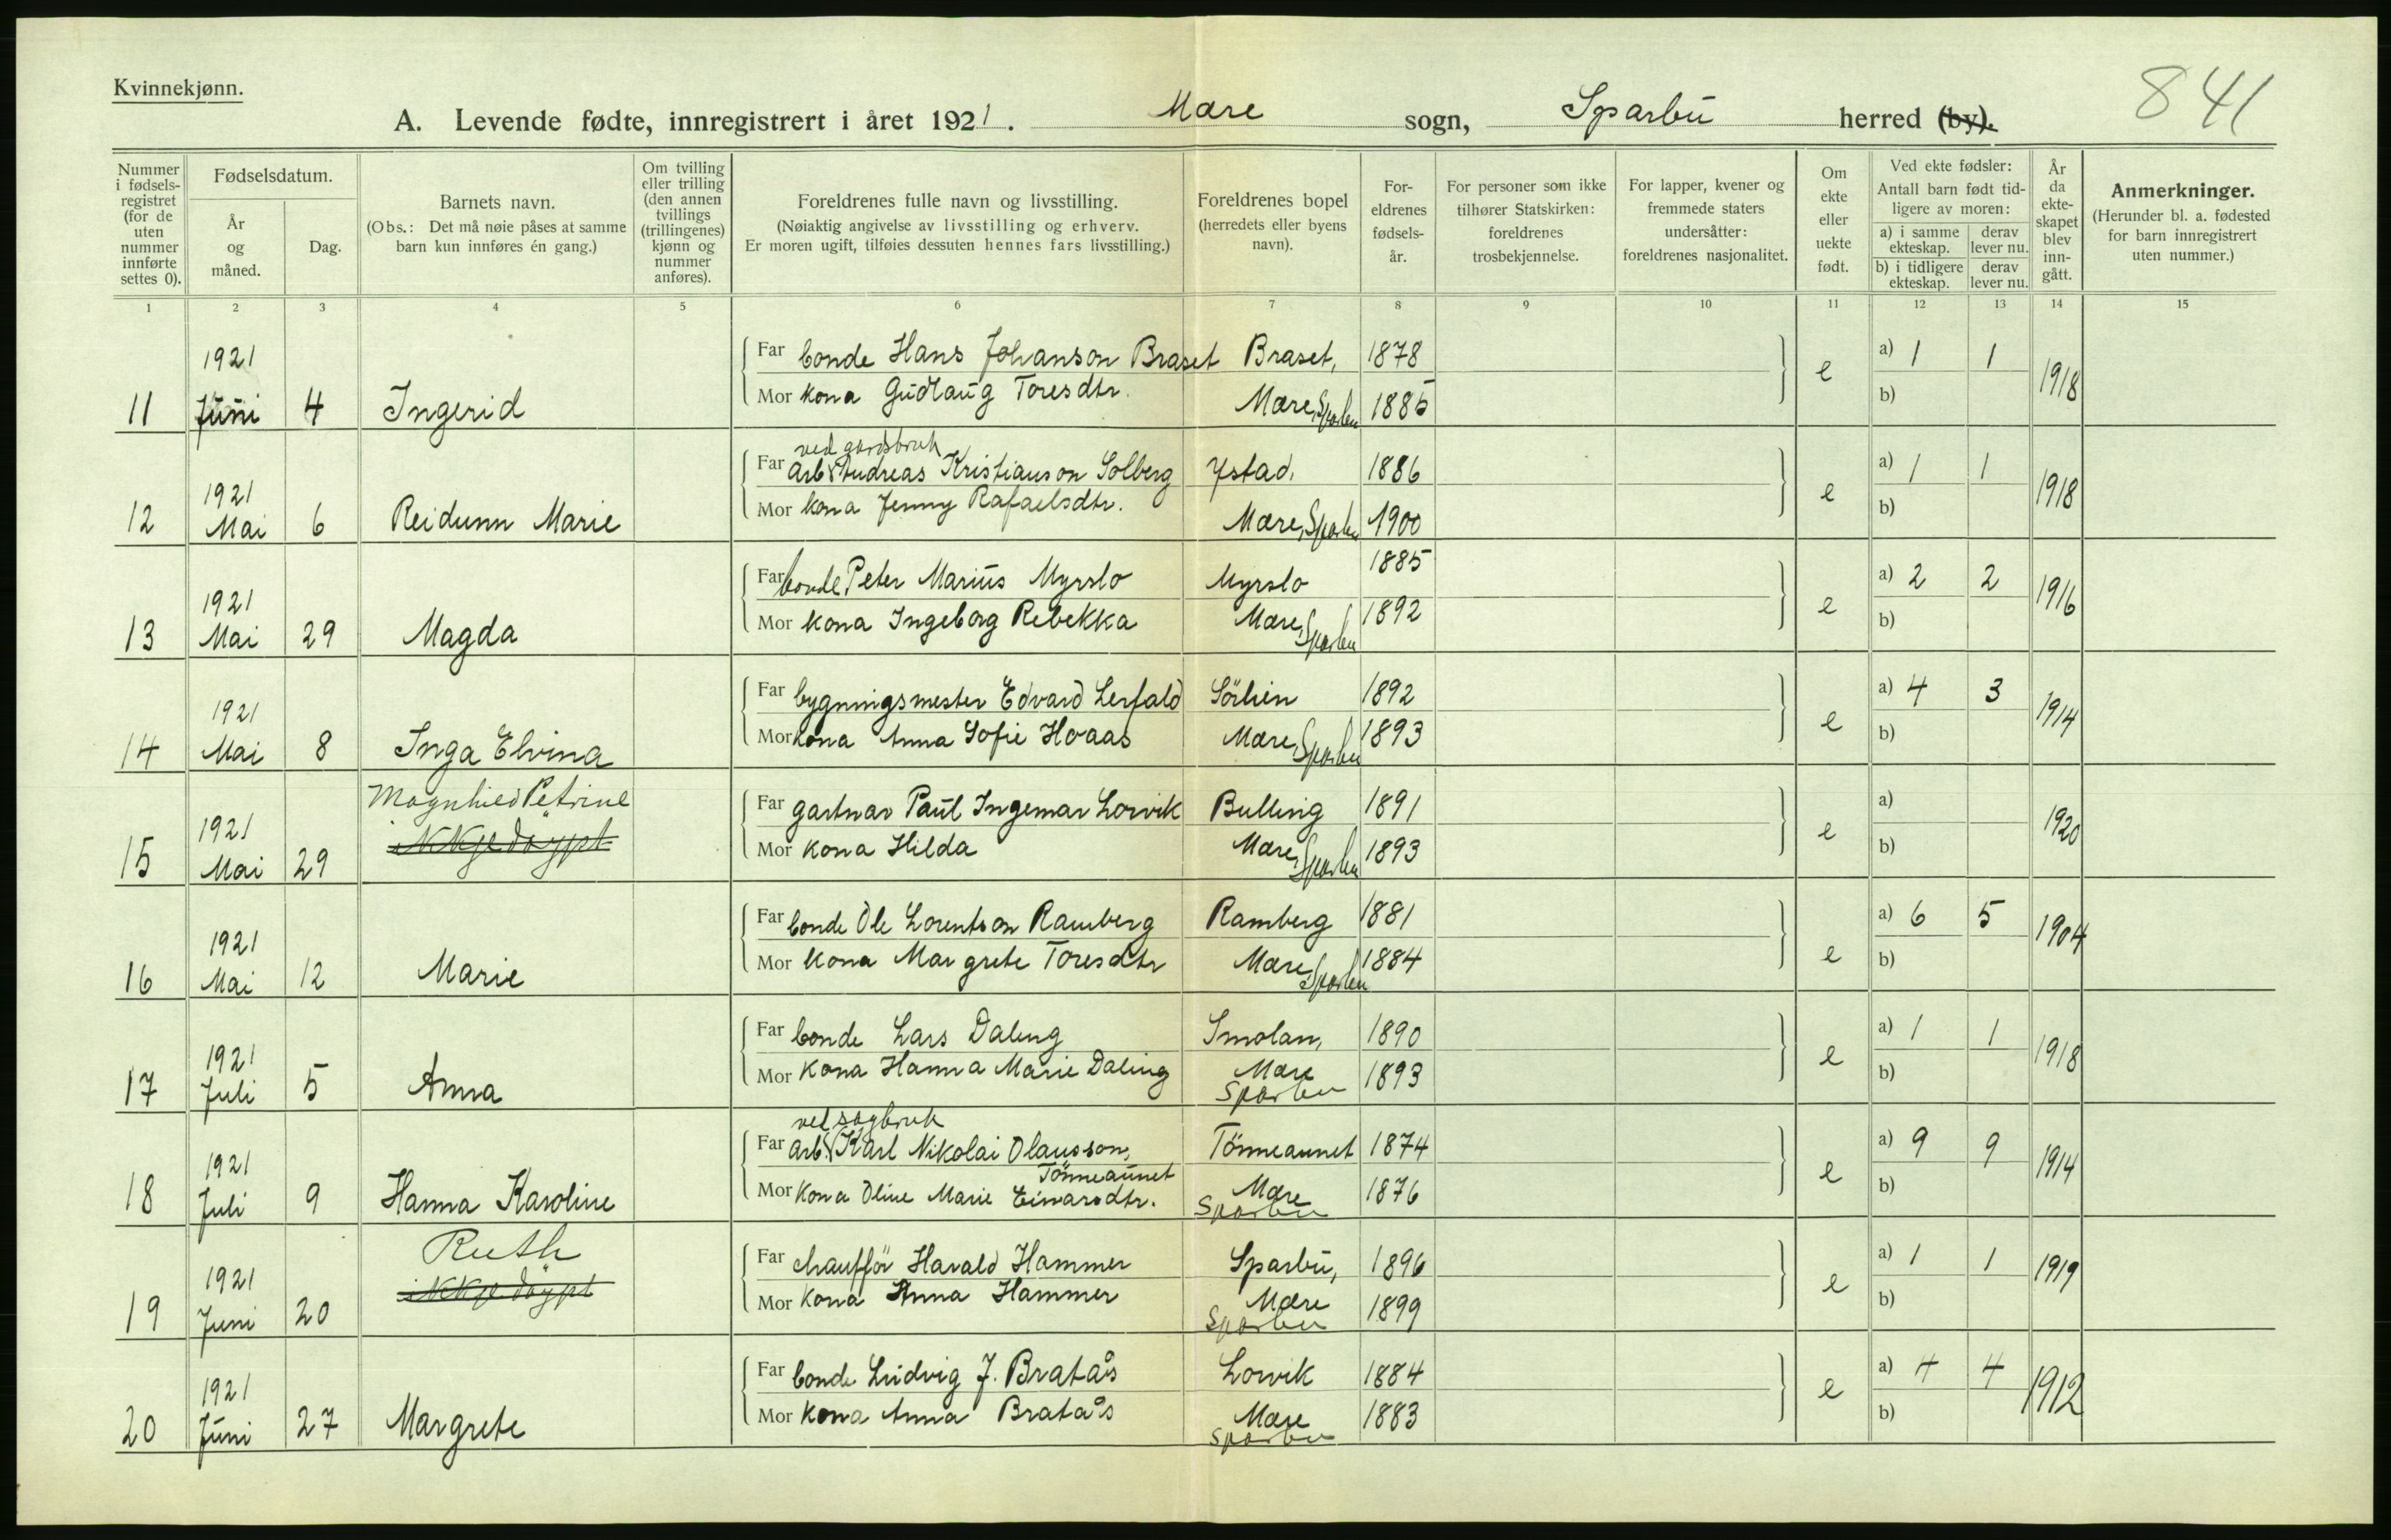 Kvinnekjønn.
841
A. Levende fødte, innregistrert i året 1921. Mære sogn, Sparbu herred (by).
Nummer i fødselsregistret (for de uten nummer innførte settes 0).
Fødselsdatum.
År og måned.
Dag.
Barnets navn.
(Obs.: Det må nøie påses at samme barn kun innføres én gang.)
Om tvilling eller trilling (den annen tvillings (trillingenes) kjønn og nummer anføres).
Foreldrenes fulle navn og livsstilling.
(Nøiaktig angivelse av livsstilling og erhverv.
Er moren ugift, tilføies dessuten hennes fars livsstilling.)
Foreldrenes bopel
(herredets eller byens navn).
Foreldrenes fødselsår.
For personer som ikke tilhører Statskirken: foreldrenes trosbekjennelse.
For lapper, kvener og fremmede staters undersåtter: foreldrenes nasjonalitet.
Om ekte eller uekte født.
Ved ekte fødsler:
Antall barn født tidligere av moren:
a) i samme ekteskap.
derav lever nu.
b) i tidligere ekteskap.
derav lever nu.
År da ekteskapet blev inngått.
Anmerkninger.
(Herunder bl. a. fødested for barn innregistrert uten nummer.)
1 2 3 4 5 6 7 8 9 10 11 12 13 14 15
1921
11 Juni 4 Ingerid
Far bonde Hans Johanson Braset Braset, 1878
Mor kona Gudlaug Toresdtr. Mære, Sparbu 1885
e a) 1 1 1918
b)
1921
12 Mai 6 Reidunn Marie
ved gardsbruk
Far arb. Andreas Kristianson Solberg Ystad. 1886
Mor kona Jenny Rafaelsdtr. Mære, Sparbu 1900
e a) 1 1 1918
b)
1921
13 Mai 29 Magda
Far bonde Peter Marius Myrslo Myrslo 1885
Mor kona Ingeborg Rebekka Mære, Sparbu 1892
e a) 2 2 1916
b)
1921
14 Mai 8 Inga Elvina
Far bygningsmester Edvard Lerfald Sörlien 1892
Mor kona Anna Sofie Hoaas Mære, Sparbu 1893
e a) 4 3 1914
b)
Magnhild Petrine
1921 ikkje døypt
15 Mai 29
Far gartnar Paul Ingemar Lorvik Bulling 1891
Mor kona Hilda Mære, Sparbu 1893
e a) 1920
b)
1921
16 Mai 12 Marie
Far bonde Ole Lorentson Ramberg Ramberg 1881
Mor kona Margrete Toresdtr Mære, Sparbu 1884
e a) 6 5 1904
b)
1921
17 Juli 5 Anna
Far bonde Lars Daling Smolan, 1890
Mor kona Hanna Marie Daling Mære Sparbu 1893
e a) 1 1 1918
b)
1921
18 Juli 9 Hanna Karoline
ved sagbruk
Far arb. Karl Nikolai Olausson, Tönneaunet Tönneaunet 1874
Mor kona Oline Marie Einarsdtr. Mære Sparbu 1876
e a) 9 9 1914
b)
Ruth
1921 ikkje døypt
19 Juni 20
Far chaufför Harald Hammer Sparbu, 1896
Mor kona Anna Hammer Mære Sparbu 1899
e a) 1 1 1919
b)
1921
20 Juni 27 Margrete
Far bonde Ludvig J. Bratås Lorvik 1884
Mor kona Anna Bratås Mære Sparbu 1883
e a) 4 4 1912
b)